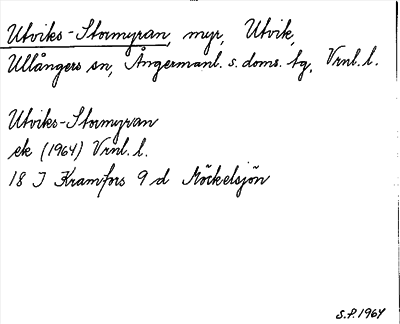 Utviks-Stormyran, myr, Utvik,
Ullångers sn, Ångermanl. s. doms. tg, Vrnl. l.
Utviks-Stormyran
ek (1964) Vrnl. l.
18 I Kramfors 9 d Möckelsjön
S.P. 1964